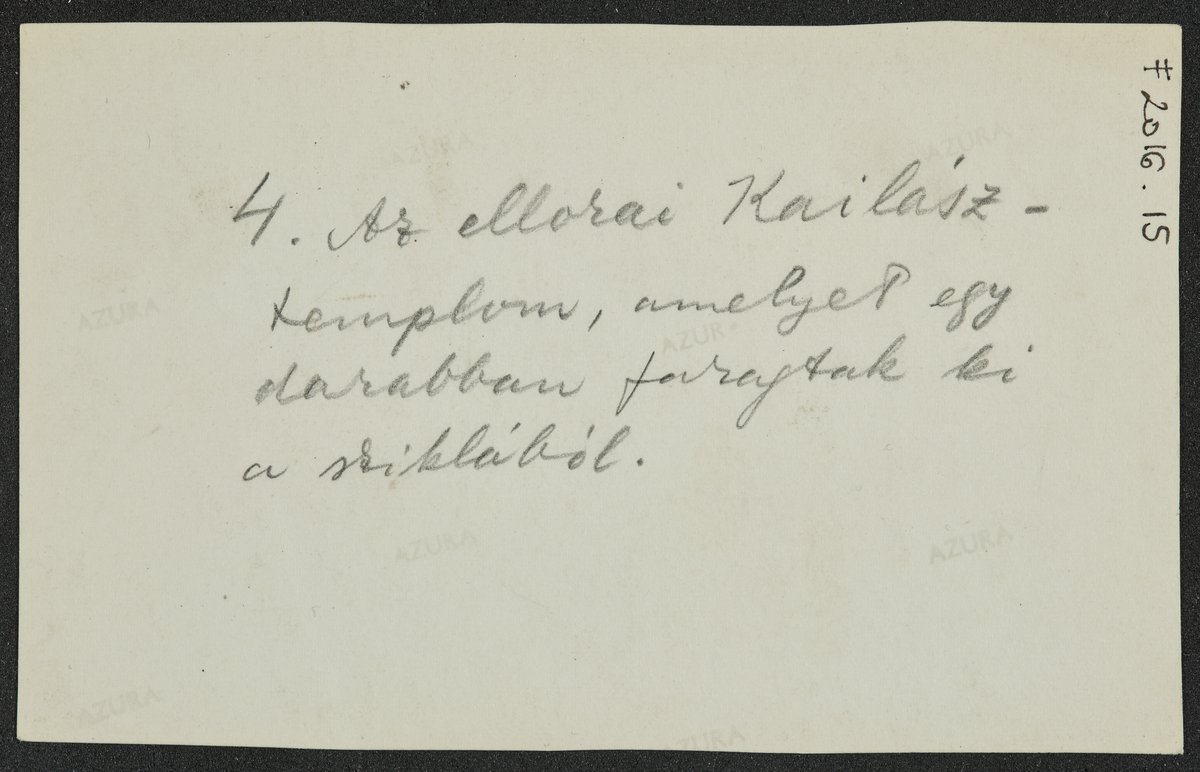 4. Az ellorai Kailász-
templom, amelyet egy
darabban faragtak ki
a sziklából.
F 2016.15
AZURA
AZURA
AZURA
AZURA
AZURA
AZURA
AZURA
AZURA